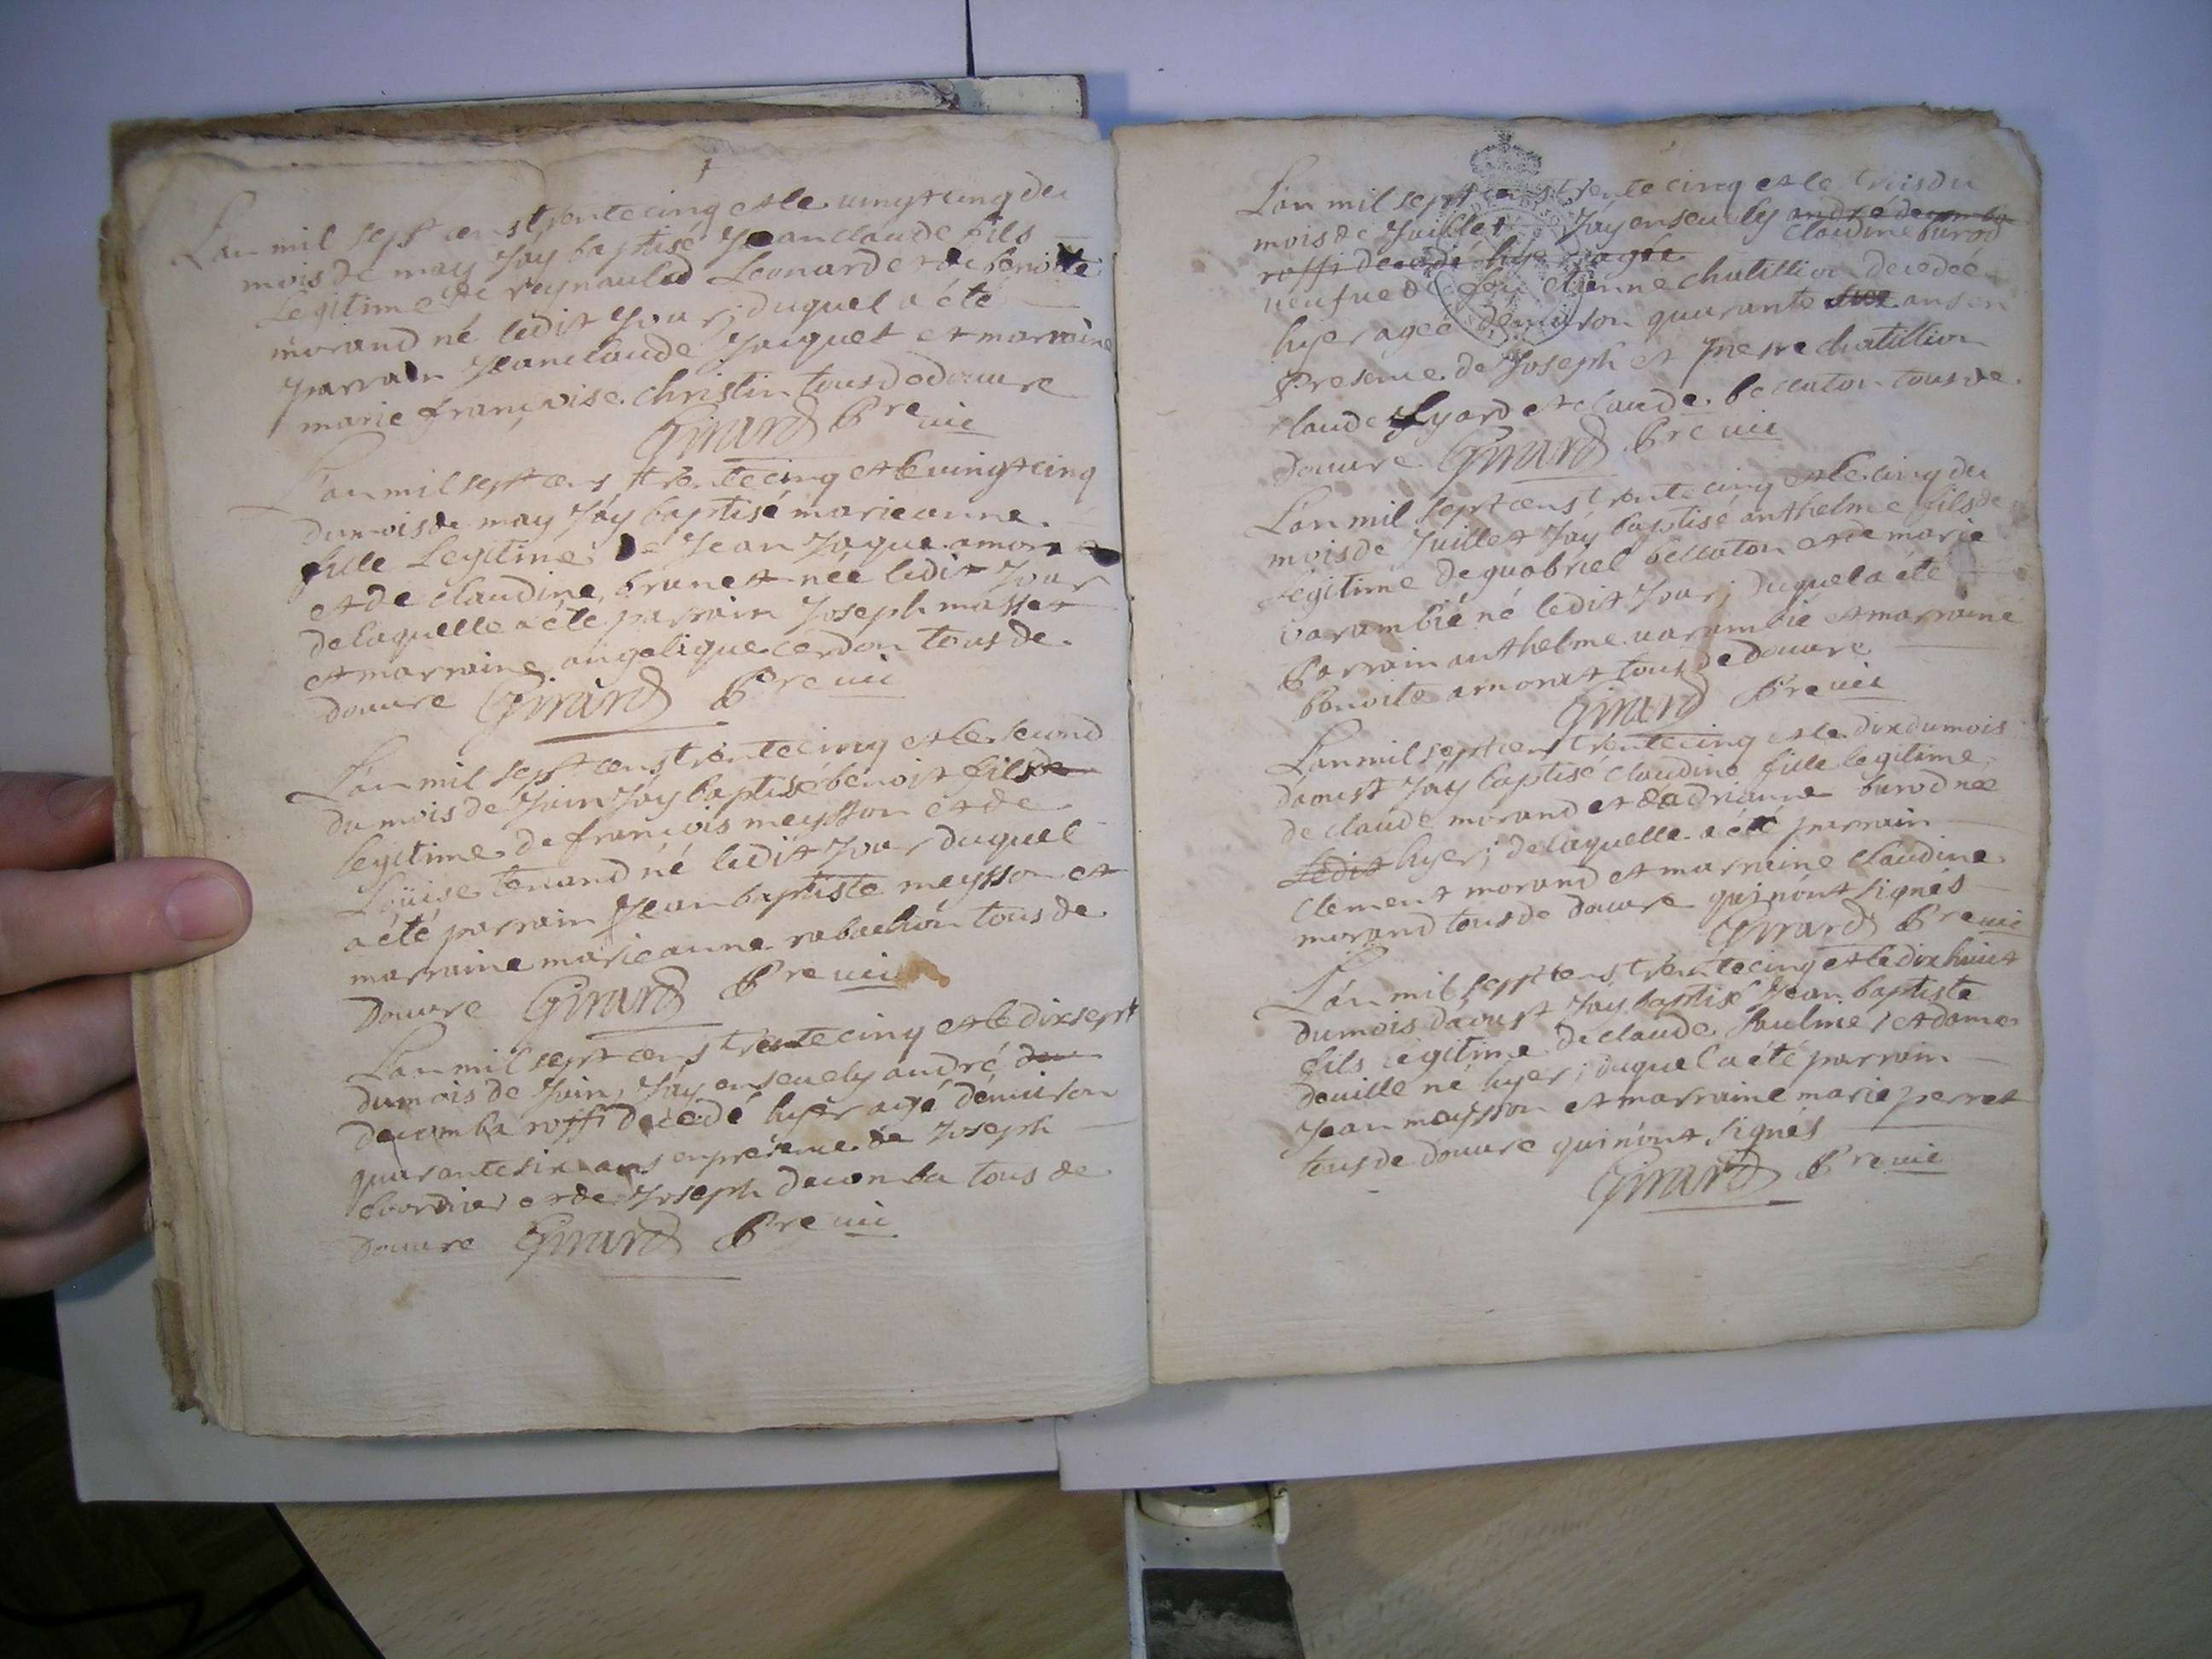 L'an mil sept cens trente cinq et le vingt cinq du
mois de may J'ay baptisé Jean claude fils
Legitime de reynaulud Leonard et de benoite
morand né ledit Jour; duquel a été
parrain Jeanclaude Jacquet et marraine
marie françoise christin tous de douvre
Girard Pre vic
L'an mil sept cens trente cinq et le vingt cinq
du mois de may J'ay baptisé marieanne
fille Legitime de Jean Jaque amora
et de claudine brunet née ledit Jour
de laquelle a été parrain Joseph masset
et marraine angelique cerdon tous de
douvre Girard Pre vic
L'an mil sept cens trente cinq et le second
du mois de Juin J'ay baptisé benoit fils
legitime de françois meysson et de
Loüise tenand né ledit Jour duquel
a été parrain Jean baptiste meysson et
marraine marieanne tous de
Douvre Girard Pre vic
L'an mil sept cens trente cinq et le dix sept
du mois de Juin, J'ay ensevely andré
decomba roffi decedé hyer agé d'environ
quarante six ans en présence de Joseph
et de Joseph decomba tous de
Douvre Girard Pre vic
L'an mil sept cens trente cinq et le trois du
mois de Juillet J'ay ensevely andré decomba
claudine burod
roffi decedé hyer agé
veufue de feu etienne chatillion decedée
hyer agée d'environ quarante ans en
Presence de Joseph et pierre chatillion
claude Lyard et claude beccaton tous de
douvre Girard Pre vic
L'an mil sept cens trente cinq et le cinq du
mois de Juillet J'ay baptisé anthelme fils de
Legitime de guabriel beccaton et de marie
varambié né ledit Jour; duquel a été
Parrain anthelme varambié et marraine
benoite amorat tous de Douvre
Girard Pre vic
L'an mil sept cens trente cinq et le dix du mois
daoust J'ay baptisé claudine fille legitime
de claude morand et dadrianne burod née
Ledit hyer; de laquelle a été parrain
clement morand et marraine claudine
morand tous de douvre qui n'ont signés
Girard Pre vic
L'an mil sept cens trente cinq et le dix huict
du mois daoust J'ay baptisé Jean baptiste
fils legitime de claude et dame
deville né hyer; duquel a été parrain
Jean meysson et marraine marie perret
tous de douvre qui n'ont signés
Girard Pre vic